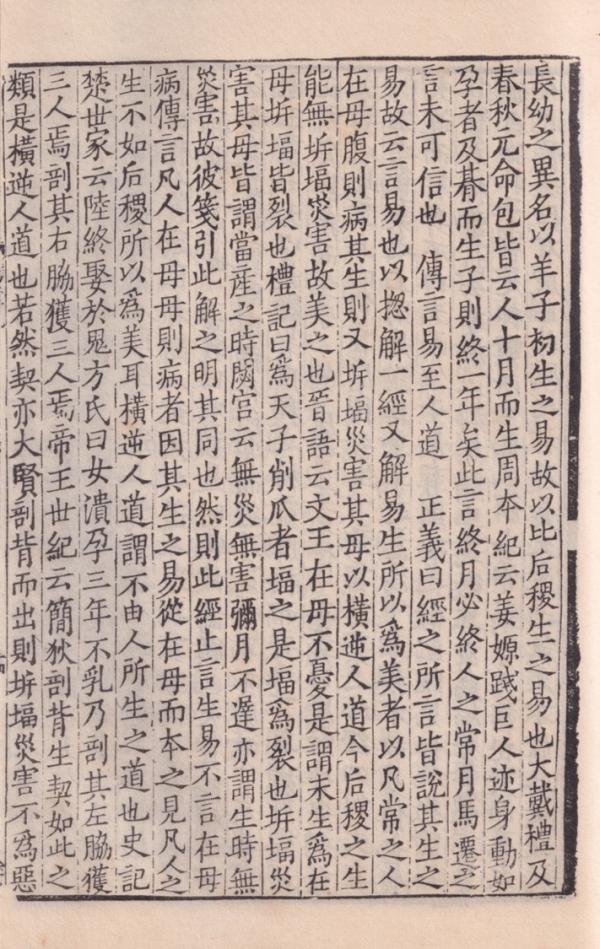 長幼之異名以羊子初生之易故以比后稷生之易也大戴禮及
春秋元命包皆云人十月而生周本紀云姜嫄踐巨人迹身動如
孕者及朞而生子則終一年矣此言終月必終人之常月馬遷之
言未可信也　傳言易至人道　正義曰經之所言皆說其生之
易故云言易也以揔解一經又解易生所以爲美者以凡常之人
在母腹則病其生則又坼堛災害其母以橫逆人道今后稷之生
能無坼堛災害故美之也晉語云文王在母不憂是謂未生爲在
母坼堛皆裂也禮記曰爲天子削瓜者堛之是堛爲裂也坼堛災
害其母皆謂當産之時閟宮云無災無害彌月不遲亦謂生時無
災害故彼箋引此解之明其同也然則此經止言生易不言在母
病傳言凡人在母母則病者因其生之易從在母而本之見凡人之
生不如后稷所以爲美耳橫逆人道謂不由人所生之道也史記
楚世家云陸終娶於鬼方氏曰女潰孕三年不乳乃剖其左脇獲
三人焉剖其右脇獲三人焉帝王世紀云簡狄剖背生契如此之
類是橫逆人道也若然契亦大賢剖背而出則坼堛災害不爲惡